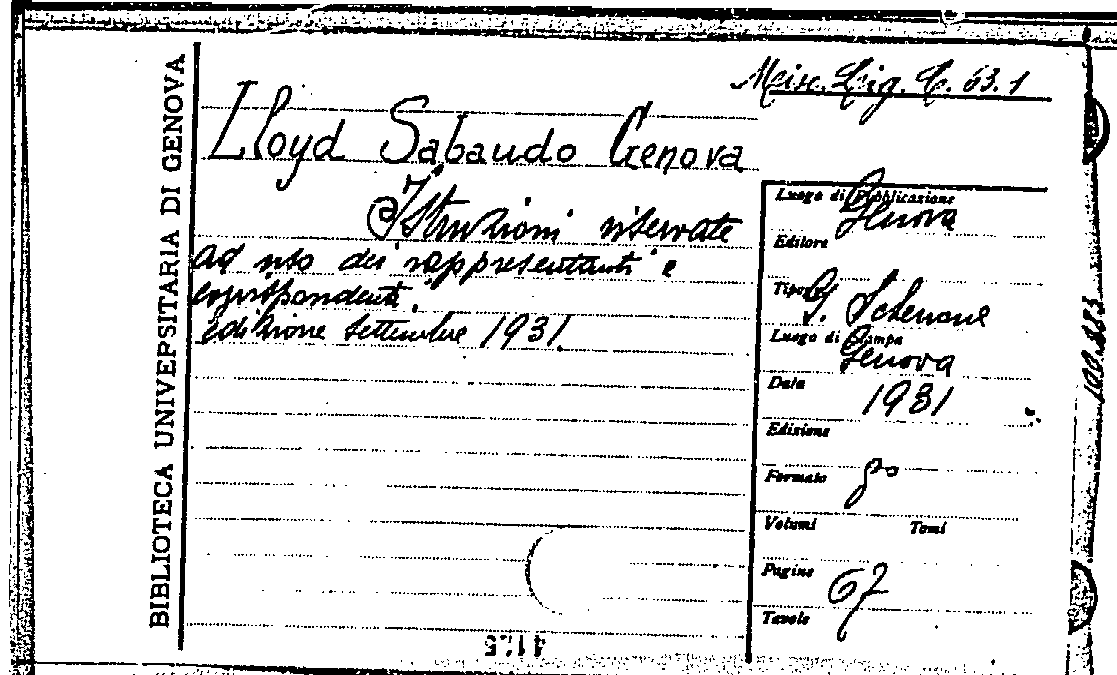 BIBLIOTECA UNIVERSITARIA DI GENOVA
Misc. Lig. C. 63.1
Lloyd Sabaudo Genova
Istruzioni riservate
ad uso dei rappresentanti e
corrispondenti.
Edizione settembre 1931
Luogo di Pubblicazione
Genova
Editore
G. Schenone
Luogo di Stampa
Genova
Data
1931
Edizione
Formato 8°
Volumi Tomi
Pagine 67
Tavole